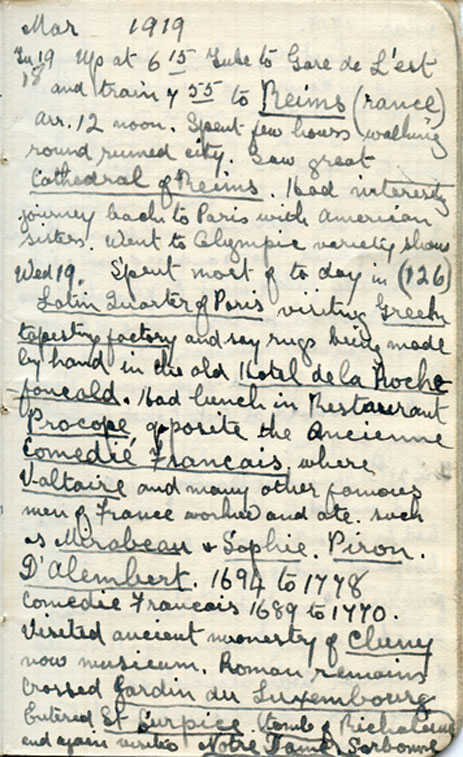 Mar 1919
Tu 19 Up at 6 15 Tube to Gare de L'est
18 and train 7 55 to Reims (rance)
arr. 12 noon. Spent few hours walking
round ruined city. Saw great
Cathedral of Reims. Had interestg
journey back to Paris with American
sisters. Went to Olympic variety show
Wed 19. Spent most of to day in (126)
Latin Quarter of Paris visiting Greek
tapestry factory and say rugs being made
by hand in the old Hotel de la Roche
foucald. Had lunch in Restaurant
Procope opposite the Ancienne
Comedié Francais where
Voltaire and many other famous
men of France worked and ate. such
as Mirabeau & Sophie. Piron.
D'Alembert. 1694 to 1778
Comedie Francais 1689 to 1770.
Visited ancient monestry of Cluny
now musieum. Roman remains
Crossed Jardin du Luxembourg
Entered St Surpice. (tomb of
and again visited Notre Dame, Sorbonne